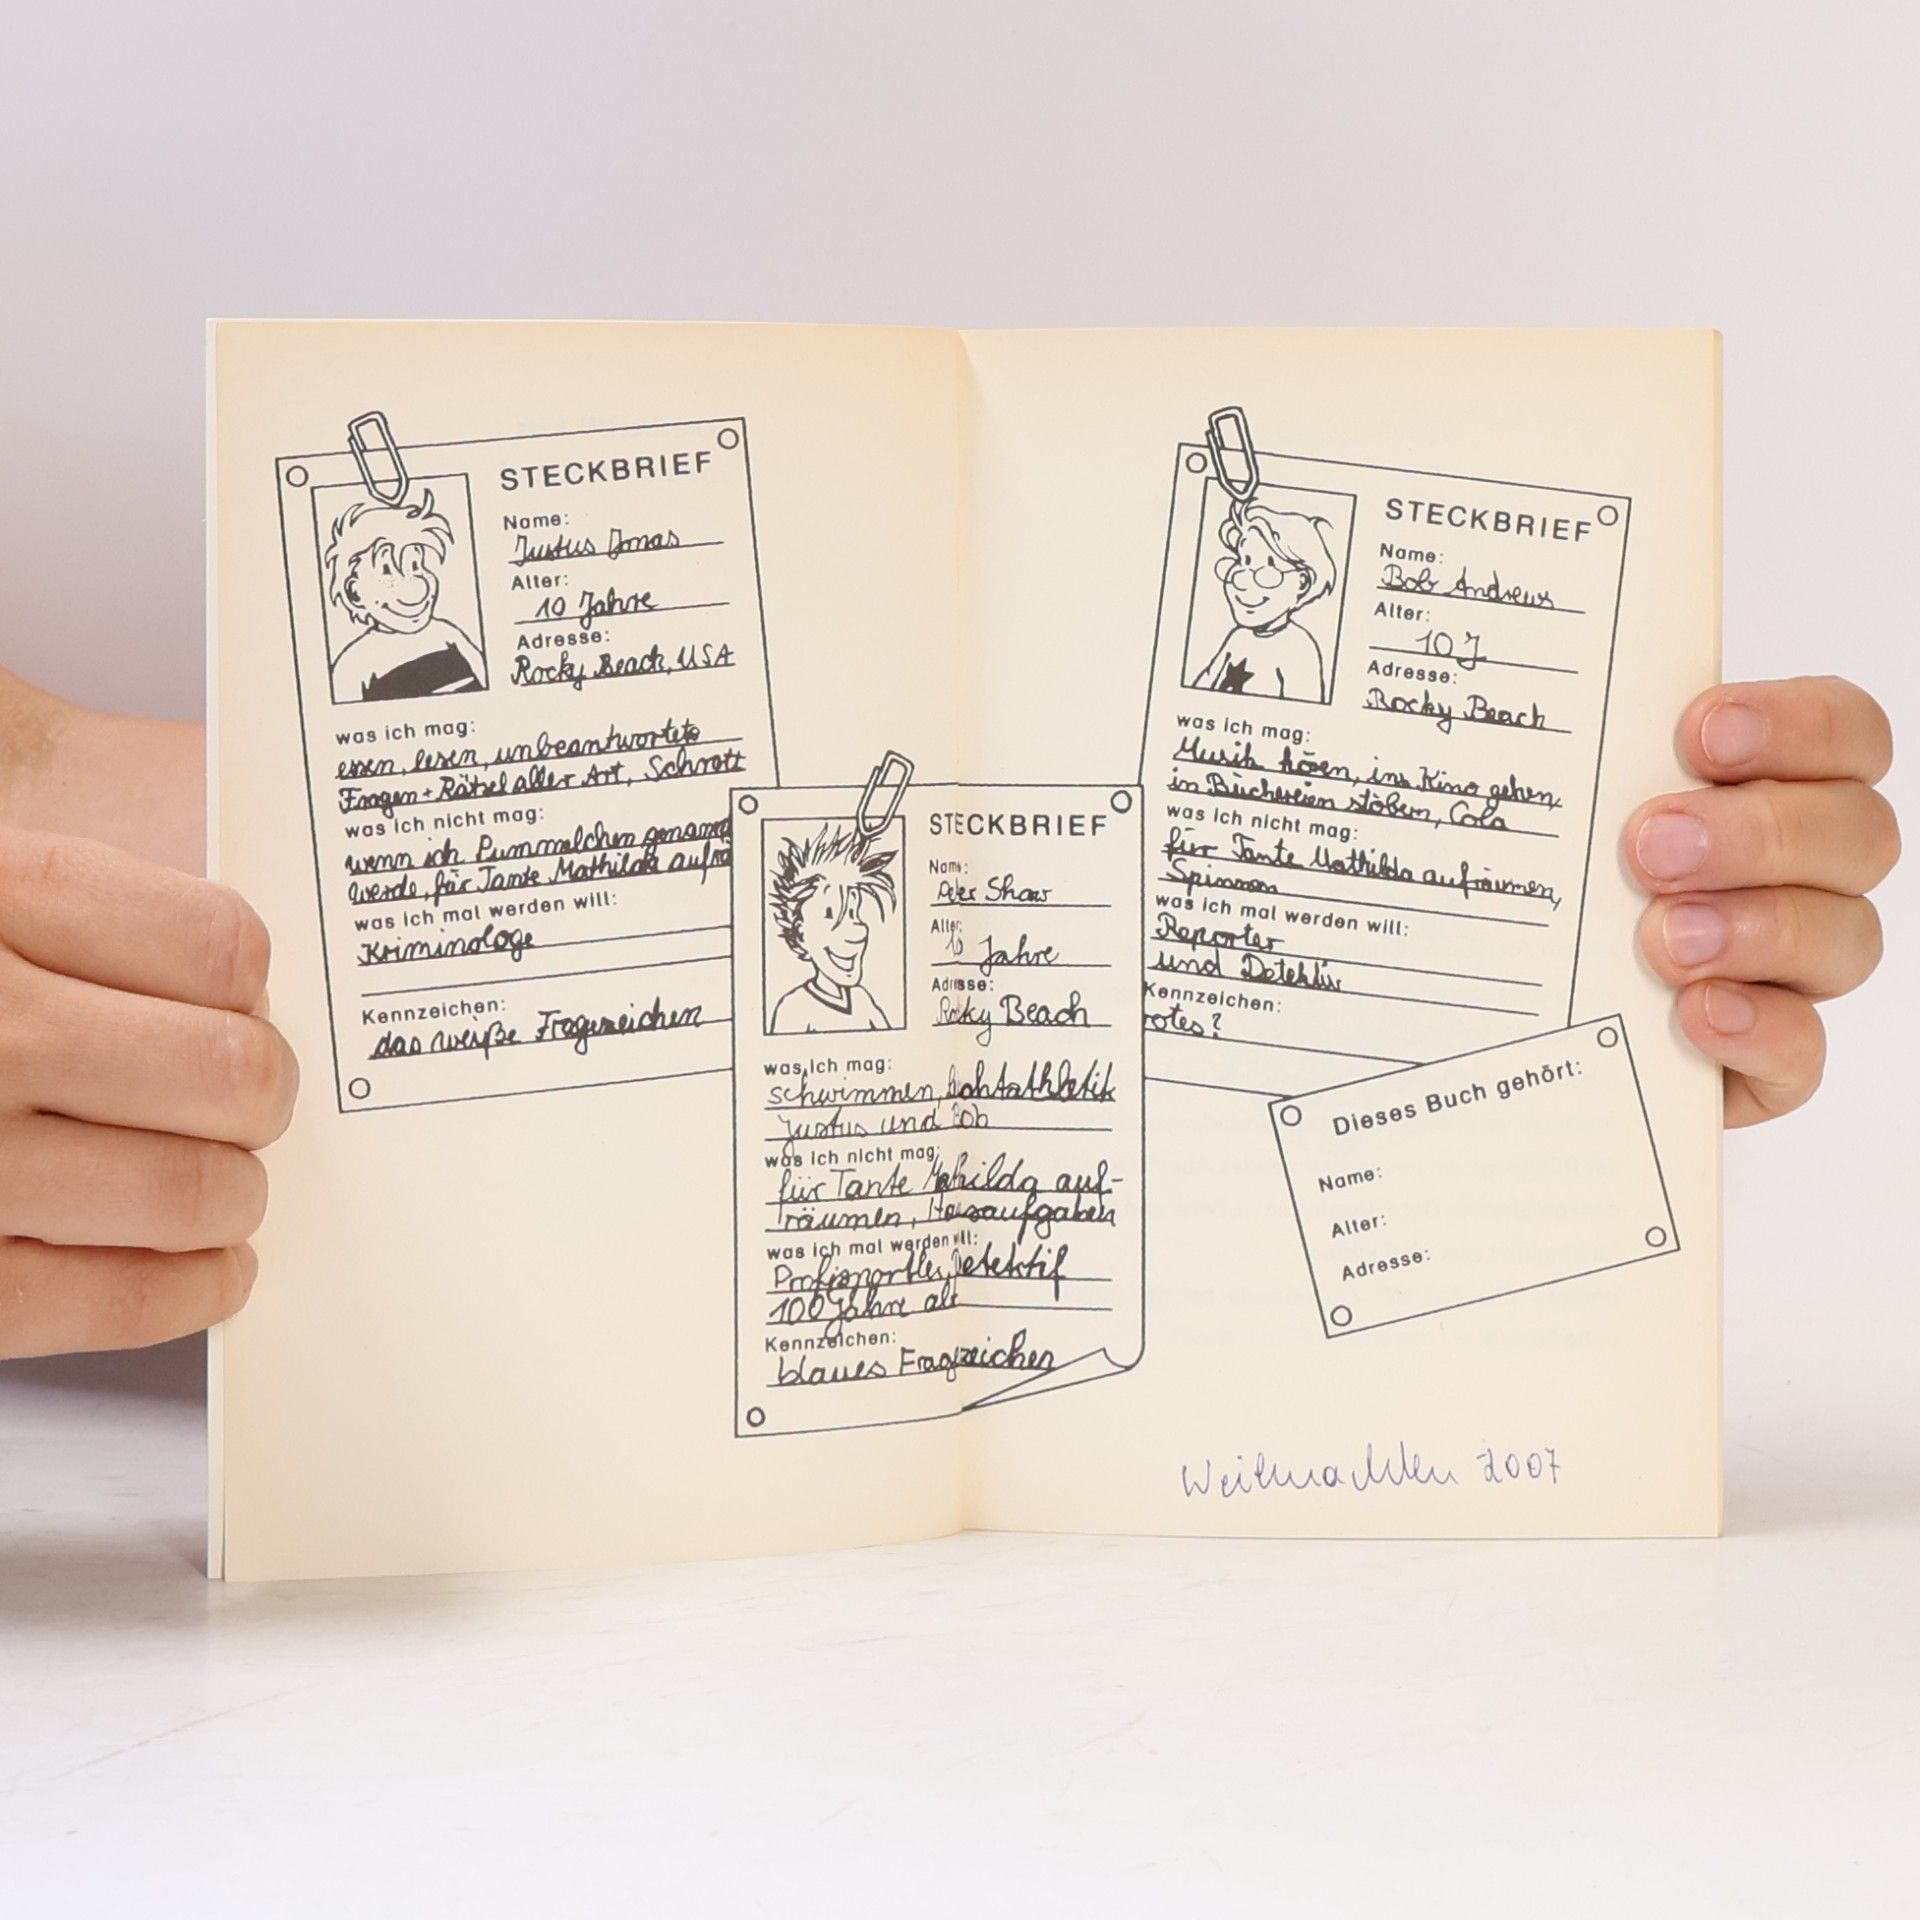 STECKBRIEF
Name:
Justus Jonas
Alter:
10 Jahre
Adresse:
Rocky Beach, USA
was ich mag:
essen, lesen, unbeantwortete
Fragen + Rätsel aller Art, Schrott
was ich nicht mag:
wenn ich Pummelchen genannt
werde, für Tante Mathilda aufrä
was ich mal werden will:
Kriminologe
Kennzeichen:
das weiße Fragezeichen
STECKBRIEF
Name:
Peter Shaw
Alter:
10 Jahre
Adresse:
Rocky Beach
was ich mag:
schwimmen, Leichtathletik
Justus und Bob
was ich nicht mag:
für Tante Mathilda auf-
räumen, Hausaufgaben
was ich mal werden will:
Profisportler, Detektif
100 Jahre alt
Kennzeichen:
blaues Fragezeichen
STECKBRIEF
Name:
Bob Andrews
Alter:
10 J
Adresse:
Rocky Beach
was ich mag:
Musik hören, ins Kino gehen,
in Büchereien stöbern, Cola
was ich nicht mag:
für Tante Mathilda aufräumen,
Spinnen
was ich mal werden will:
Reporter
und Detektiv
Kennzeichen:
rotes ?
Dieses Buch gehört:
Name:
Alter:
Adresse:
Weihnachten 2007